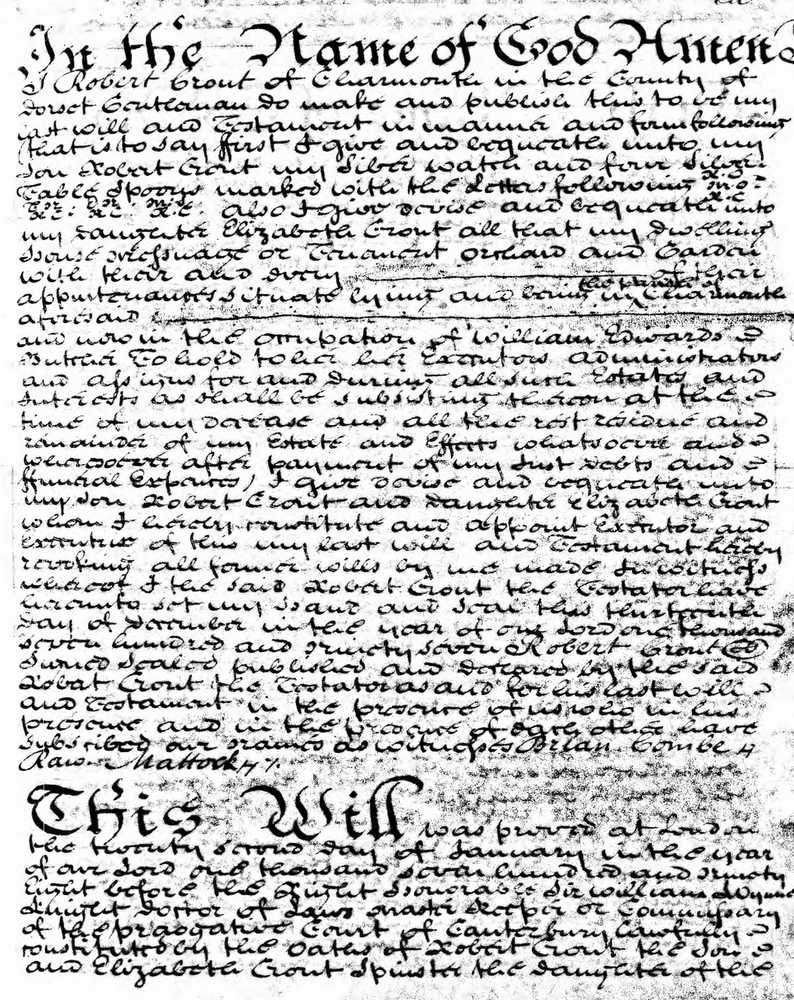 In the Name of God Amen
I Robert Crout of Charmouth in the County of
Dorset Gentleman do make and publish this to be my
last will and Testament in manner and form following
that is to say ffirst I give and bequeath unto my
Son Robert Crout my Silver watch and four Silver
Table Spoons marked with the Letters following
also I give devise and bequeath unto
my daughter Elizabeth Crout all that my dwelling
House Messuage or Tenement Orchard and Garden
with their and every of their
appurtenances situate lying and being in the parish of Charmouth
aforesaid
and now in the occupation of William Edwards
Butcher To hold to her her Executors administrators
and assigns for and during all such Estates and
Interests as shall be subsisting thereon at the
time of my decease and all the rest residue and
remainder of my Estate and Effects whatsoever and
wheresoever after payment of my Just debts and
ffuneral Expences) I give devise and bequeath unto
my son Robert Crout and daughter Elizabeth Crout
whom I hereby constitute and appoint Executor and
Executrix of this my last will and Testament hereby
revoking all former wills by me made In witness
whereof I the said Robert Crout the Testator have
hereunto set my Hand and Seal this thirteenth
day of december in the year of our Lord one thousand
seven hundred and ninety seven Robert Crout
Signed Sealed published and declared by the said
Robert Crout the Testator as and for his last will
and Testament in the presence of us who in his
presence and in the presence of each other have
subscribed our Names as witnesses Brian Combe
Mattock
This Will was proved at London
the twenty second day of January in the year
of our Lord one thousand seven hundred and ninety
Eight before the Right Honorable Sir William Wynne
Knight Doctor of Laws Master Keeper or Commissary
of the prerogative Court of Canterbury lawfully
constituted by the Oaths of Robert Crout the Son
and Elizabeth Crout Spinster the daughter of the